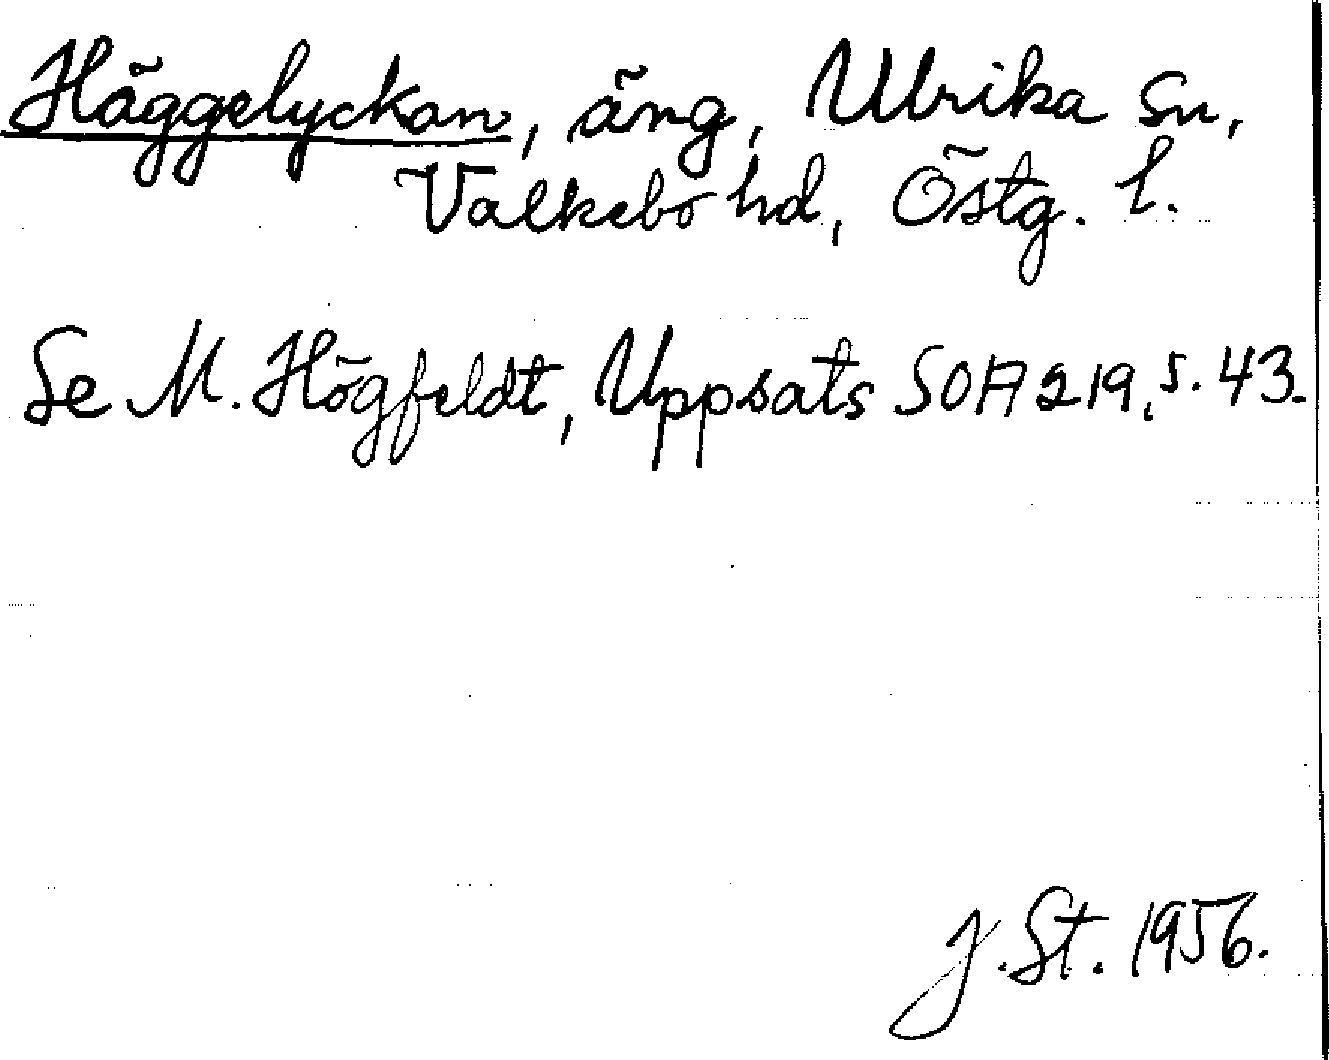 Häggelyckan, äng, Ulrika sn,
Valkebo hd, Östg. l.
Se M. Högfeldt, Uppsats SOA 219, s. 43.
J. St. 1956.